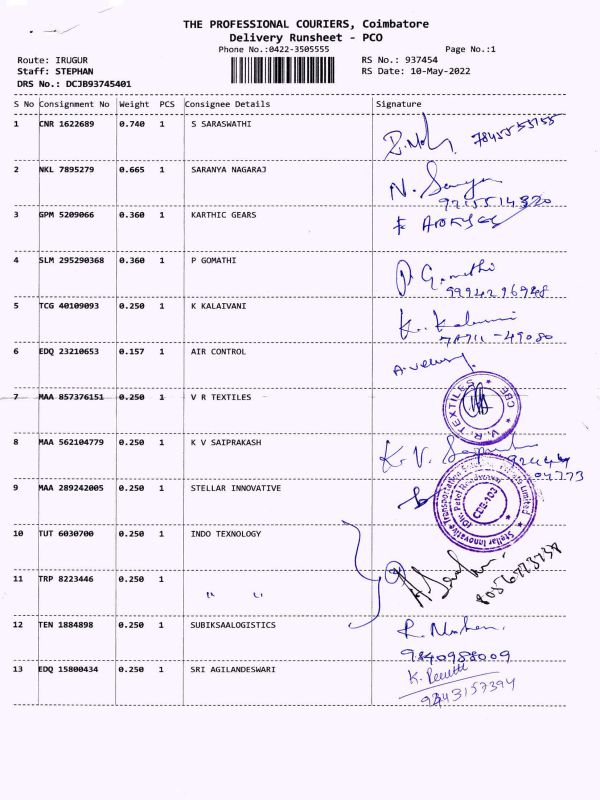 THE PROFESSIONAL COURIERS, Coimbatore
Delivery Runsheet - PCO
Phone No.:0422-3505555 Page No.:1
Route: IRUGUR RS No.: 937454
Staff: STEPHAN RS Date: 10-May-2022
DRS No.: DCJB93745401
S No Consignment No Weight PCS Consignee Details Signature
1 CNR 1622689 0.740 1 S SARASWATHI
2 NKL 7895279 0.665 1 SARANYA NAGARAJ
N.
3 GPM 5209066 0.360 1 KARTHIC GEARS
4 SLM 295290368 0.360 1 P GOMATHI
P. Gomathi
9994296948
5 TCG 40109093 0.250 1 K KALAIVANI
K. Kalaivani
6 EDQ 23210653 0.157 1 AIR CONTROL
7 MAA 857376151 0.250 1 V R TEXTILES
V.R. TEXTILES * CBE *
8 MAA 562104779 0.250 1 K V SAIPRAKASH
K. V.
9 MAA 289242005 0.250 1 STELLAR INNOVATIVE
CBE-103
10 TUT 6030700 0.250 1 INDO TEXNOLOGY
11 TRP 8223446 0.250 1 " "
8056773738
12 TEN 1884898 0.250 1 SUBIKSAALOGISTICS
9840988009
13 EDQ 15800434 0.250 1 SRI AGILANDESWARI
9843157394